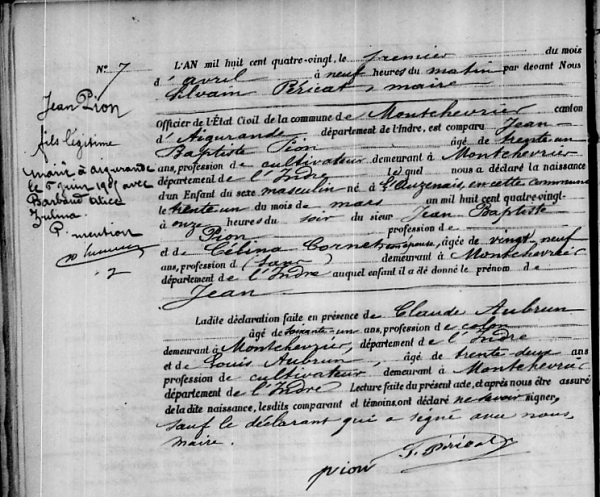 N° 7
Jean Pion
fils légitime
marié à aigurande
le 5 juin 19 avec
Barbaud
Zulma
P. mention
L'AN mil huit cent quatre-vingt, le premier du mois
d'avril à neuf heures du matin par devant Nous
Silvain Péricat, maire
Officier de l'État Civil de la commune de Montchevrier canton
d'Aigurande département de l'Indre, est comparu Jean-
Baptiste Pion âgé de trente un
ans, profession de cultivateur demeurant à Montchevrier
département de l'Indre lequel nous a déclaré la naissance
d'un Enfant du sexe masculin né à L'Auzenais, en cette commune
le trente un du mois de mars an mil huit cent quatre-vingt-
à onze heures du soir du sieur Jean Baptiste
Pion profession de
et de Célina Cornet son épouse, âgée de vingt neuf
ans, profession (sans) demeurant à Montchevrier
département de l'Indre auquel enfant il a été donné le prénom de
Jean
Ladite déclaration faite en présence de Claude Aubrun
âgé de soixante-un ans, profession de colon
demeurant à Montchevrier, département de l'Indre
et de Louis Aubrun, âgé de trente-deux ans
profession de cultivateur demeurant à Montchevrier
département de l'Indre Lecture faite du présent acte, et après nous être assuré
de la dite naissance, lesdits comparant et témoins, ont déclaré ne savoir signer,
sauf le déclarant qui a signé avec nous
maire.
pion S. Péricat